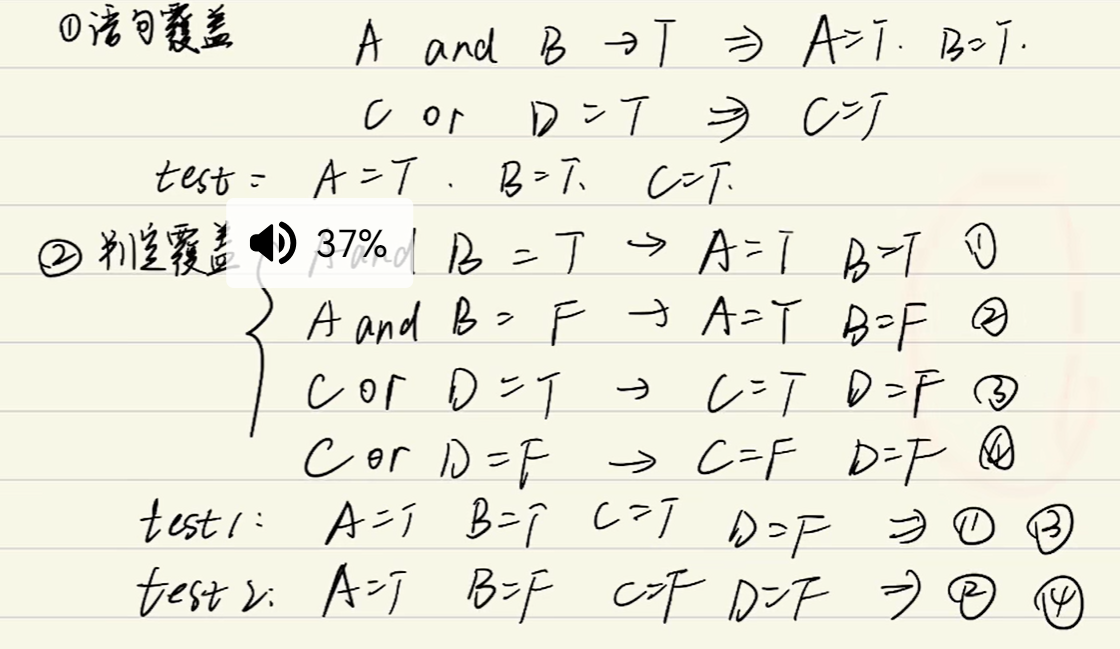 ①语句覆盖 A and B → T ⇒ A=T. B=T.
C or D = T ⇒ C=T
test: A=T. B=T、 C=T.
②判定覆盖 37% A and B = T → A=T B=T ①
A and B = F → A=T B=F ②
C or D = T → C=T D=F ③
C or D = F → C=F D=F ④
test1: A=T B=T C=T D=F ⇒ ① ③
test2: A=T B=F C=F D=F ⇒ ② ④